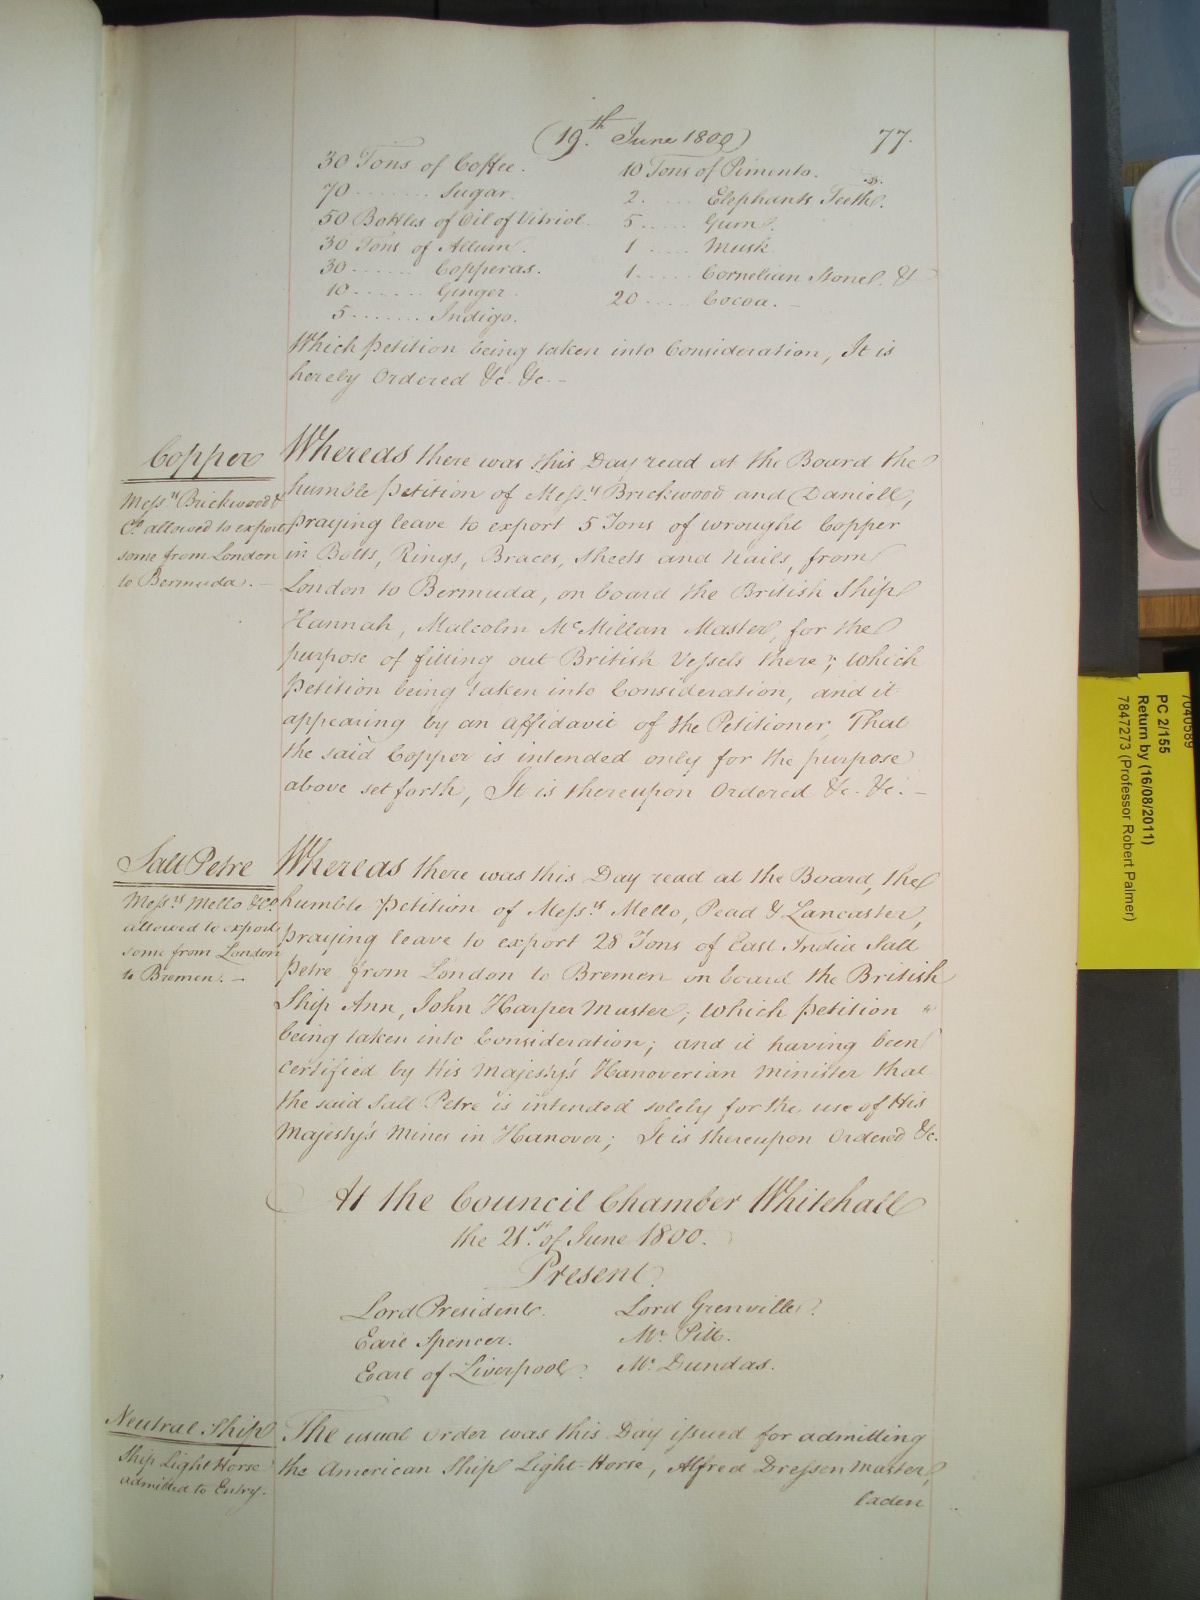 (19.th June 1800)
77.
30 Tons of Coffee.
70 ....... Sugar.
50 Bottles of Oil of Vitriol.
30 Tons of Allum.
30 ...... Copperas.
10 ....... Ginger.
5 ....... Indigo.
10 Tons of Pimento.
2. .... Elephants Teeth.
5 ..... Gum.
1 ..... Musk
1 ..... Cornelian Stones. &
20 ..... Cocoa. –
Which Petition being taken into Consideration, It is
hereby Ordered &c. &c. –
Copper
Messrs Brickwood &
Co. allowed to export
some from London
to Bermuda. –
Whereas there was this Day read at the Board the
humble Petition of Messrs Brickwood and Daniell,
praying leave to export 5 Tons of wrought Copper
in Bolts, Rings, Braces, Sheets and Nails, from
London to Bermuda, on board the British Ship
Hannah, Malcolm McMillan Master, for the
purpose of fitting out British Vessels there; which
Petition being taken into Consideration, and it
appearing by an Affidavit of the Petitioner, That
the said Copper is intended only for the purpose
above set forth, It is thereupon Ordered &c. &c. –
Salt Petre
Messrs Mello & Co.
allowed to export
some from London
to Bremen. –
Whereas there was this Day read at the Board, the
humble Petition of Messrs Mello, Pead & Lancaster,
praying leave to export 28 Tons of East India Salt
Petre from London to Bremen on board the British
Ship Ann, John Harper Master; which Petition "
being taken into Consideration; and it having been
certified by His Majesty's Hanoverian Minister that
the said Salt Petre is intended solely for the use of His
Majesty's Mines in Hanover; It is thereupon Ordered &c.
At the Council Chamber Whitehall
the 21.st of June 1800.
Present
Lord President.
Earl Spencer.
Earl of Liverpool.
Lord Grenville.
Mr. Pitt.
Mr. Dundas.
Neutral Ship
Ship Light Horse
admitted to Entry.
The usual Order was this Day issued for admitting
the American Ship Light-Horse, Alfred Dresson Master,
laden
7040589
PC 2/155
Return by (16/08/2011)
7847273 (Professor Robert Palmer)